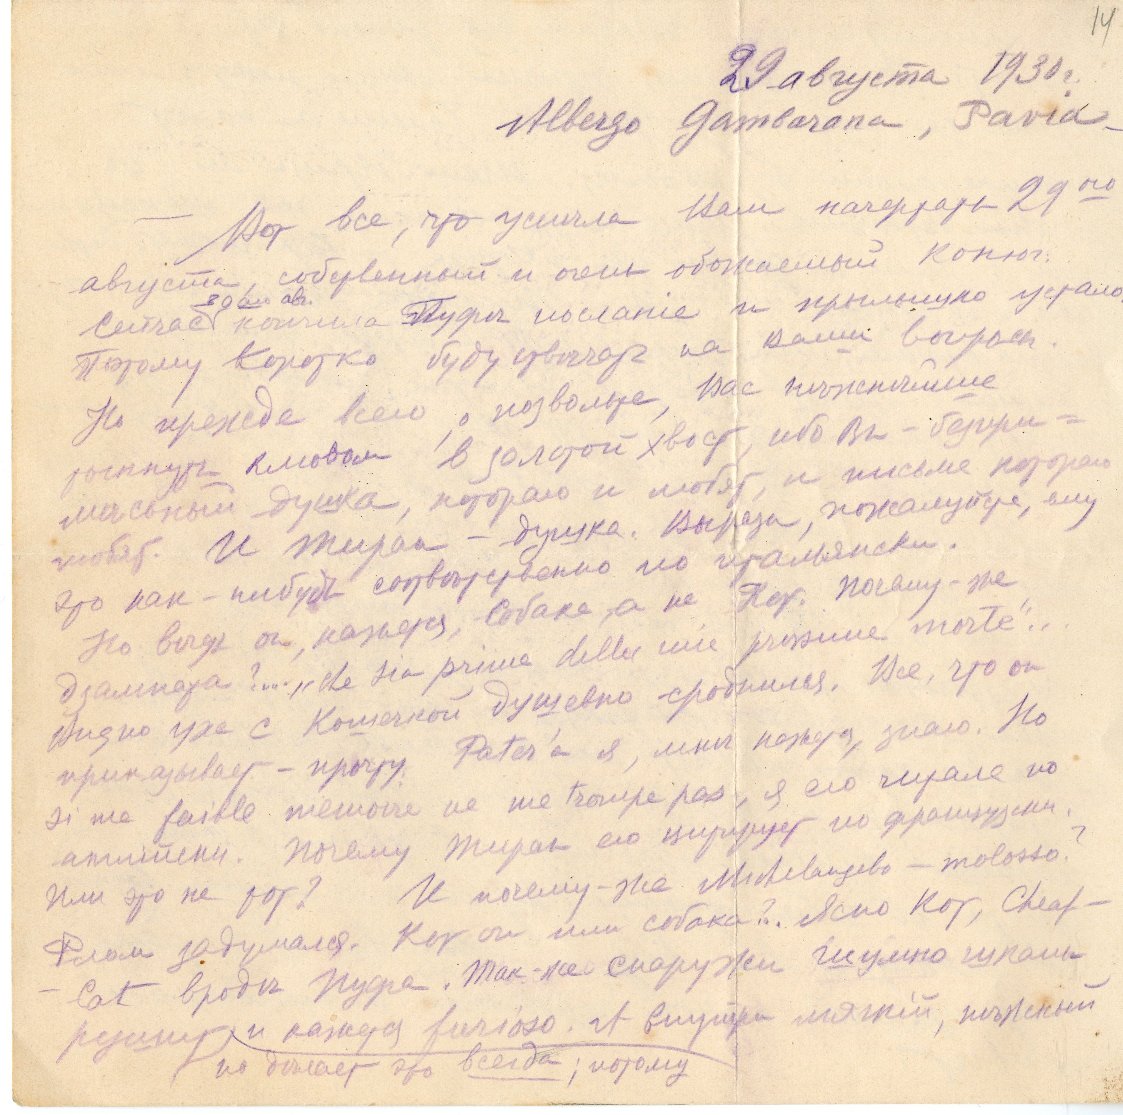 14
29 августа 1930 г.
Albergo Gambarana, Pavia
— Вот все, что успела Вам начертать 29ого
августа, собственный и очень обожаемый Конюг.
30ого авг.
Сейчас кончила Пуфы послание и крылышко устало.
Потому коротко буду отвечать на ваши вопросы.
Но прежде всего, о позвольте, Вас нѣжнѣйше
клювом в золотой хвост, ибо Вы – безпри=
душка, которую и любят, и письма которою
любят. И Жиран – душка. Вырази, пожалуйста, ему
это как-нибудь соотвѣтственно по итальянски.
Но вѣдь он, кажется, собака, а не Кот. Почему-же
? ... „che sia prima della mie prossime morte"...
Видно уже с Кошечкой душевно сроднился. Все, что он
приказывает – прочту. Pater'а я, мнѣ кажется, знаю. Но
si ma faible memoire ne me trompe pas, я его читала по
английски. Почему Жиран его цитирует по французски.
Или это не тот? И почему-же Michelangelo – molosso?
Флом задумался. Кот он или собака?.. Ясно Кот, Cheap-
– Cat вродѣ Пуфа. Так-же снаружи шумно
и кажется furioso. А внутри мягкий, нѣжный
но дѣлает это всегда; потому